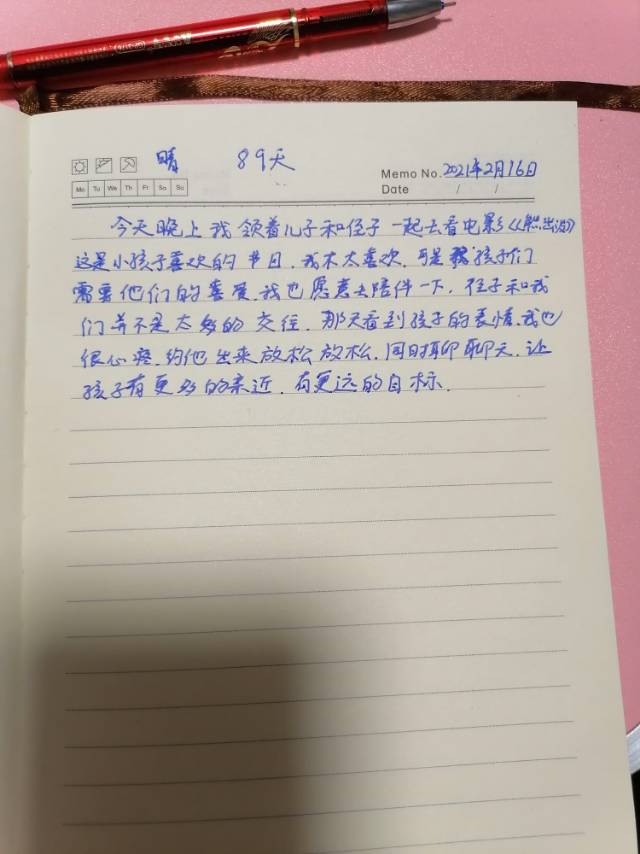 晴 89天
Memo No. 2021年2月16日
Mo Tu We Th Fr Sa Su
Date / /
今天晚上我领着儿子和侄子一起去看电影《熊出没》
这是小孩子喜欢的节目,我不太喜欢,可是孩子们
需要他们的喜爱,我也愿意去陪伴一下,侄子和我
们并不是太多的交往,那天看到孩子的表情,我也
很心疼,约他出来放松放松,同时聊聊天,让
孩子有更多的亲近,有更远的目标.